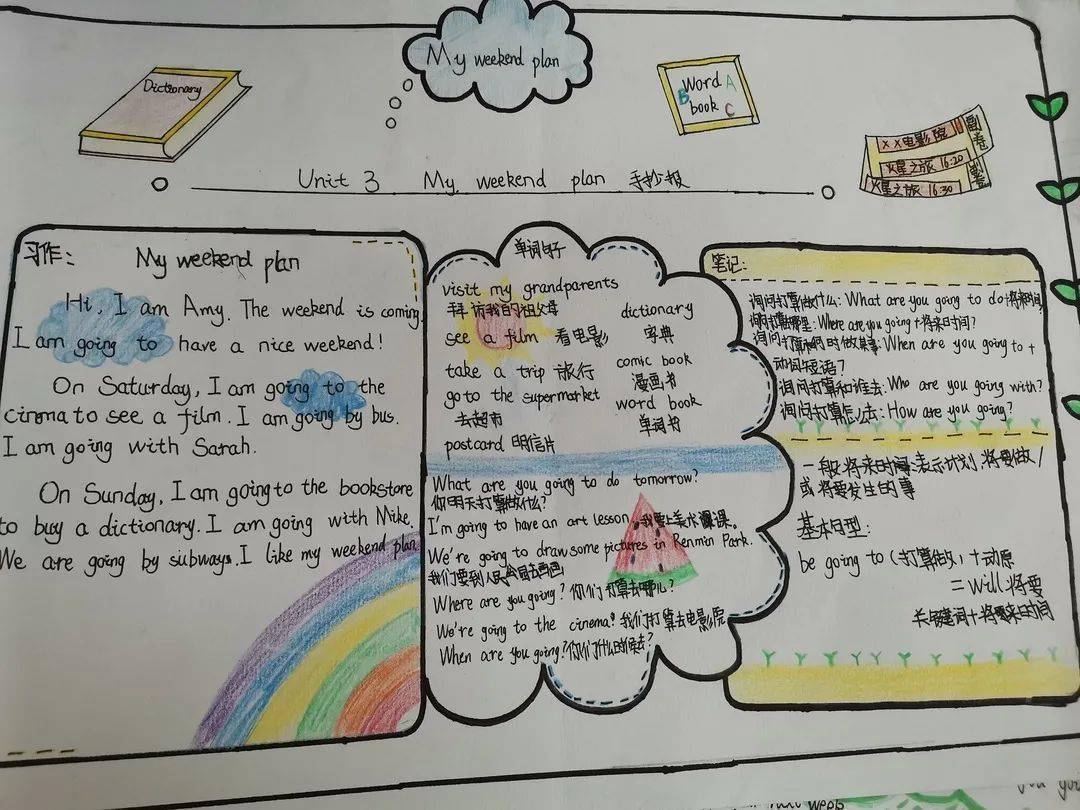 My weekend plan
Dictionary
Word A
B book C
××电影院
副卷
火星之旅 16:20
火星之旅 16:30
Unit 3 My weekend plan 手抄报
习作:
My weekend plan
Hi, I am Amy. The weekend is coming.
I am going to have a nice weekend!
On Saturday, I am going to the
cinema to see a film. I am going by bus.
I am going with Sarah.
On Sunday, I am going to the bookstore
to buy a dictionary. I am going with Mike.
We are going by subways. I like my weekend plan.
单词句子
visit my grandparents
拜访我的祖父母
see a film 看电影
take a trip 旅行
go to the supermarket
去超市
postcard 明信片
dictionary
字典
comic book
漫画书
word book
单词书
What are you going to do tomorrow?
你明天打算做什么?
I'm going to have an art lesson. 我要上美术课。
We're going to draw some pictures in Renmin Park.
我们要到人民公园去画画
Where are you going? 你们打算去哪儿?
We're going to the cinema. 我们打算去电影院
When are you going? 你们什么时候去?
笔记:
询问打算做什么: What are you going to do+将来时间?
询问打算哪里: Where are you going+将来时间?
询问打算何时做某事: When are you going to +
动词短语?
询问打算和谁去: Who are you going with?
询问打算怎么去: How are you going?
一般将来时:表示计划 将要做/
或将要发生的事
基本句型:
be going to (打算做) +动原
= Will 将要
关键词+将要来时间
next week